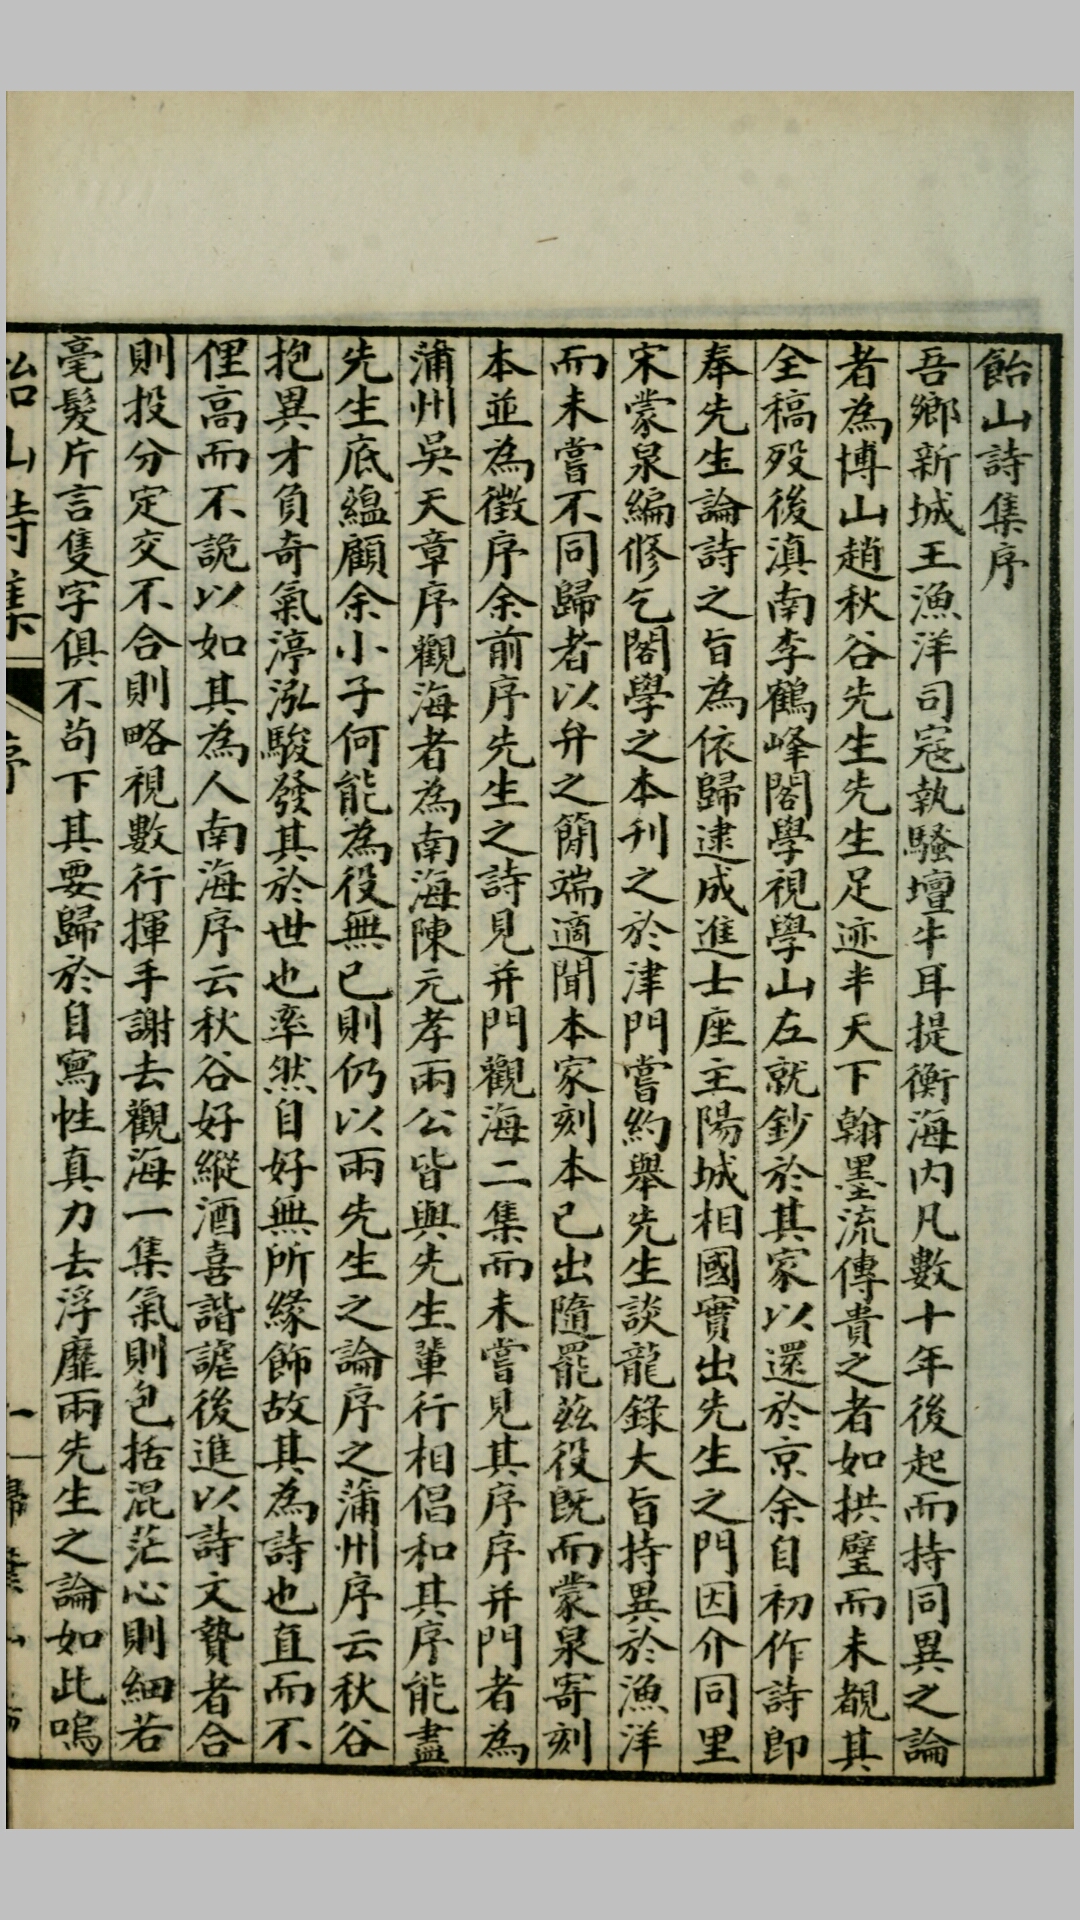 飴山詩集序
吾鄉新城王漁洋司寇執騷壇牛耳提衡海内凡數十年後起而持同異之論
者為博山趙秋谷先生先生足迹半天下翰墨流傳貴之者如拱璧而未覩其
全稿歿後滇南李鶴峰閣學視學山左就鈔於其家以還於京余自初作詩即
奉先生論詩之旨為依歸逮成進士座主陽城相國實出先生之門因介同里
宋蒙泉編修乞閣學之本刊之於津門嘗約舉先生談龍錄大旨持異於漁洋
而未嘗不同歸者以弁之簡端適聞本家刻本已出隨罷茲役既而蒙泉寄刻
本並為徵序余前序先生之詩見并門觀海二集而未嘗見其序序并門者為
蒲州吳天章序觀海者為南海陳元孝兩公皆與先生輩行相倡和其序能盡
先生底蘊顧余小子何能為役無已則仍以兩先生之論序之蒲州序云秋谷
抱異才負奇氣渟泓駿發其於世也率然自好無所緣飾故其為詩也直而不
俚高而不詭以如其為人南海序云秋谷好縱酒喜諧謔後進以詩文贄者合
則投分定交不合則略視數行揮手謝去觀海一集氣則包括混茫心則細若
毫髮片言隻字俱不苟下其要歸於自寫性真力去浮靡兩先生之論如此嗚
飴山詩集
序
一
掃葉山房